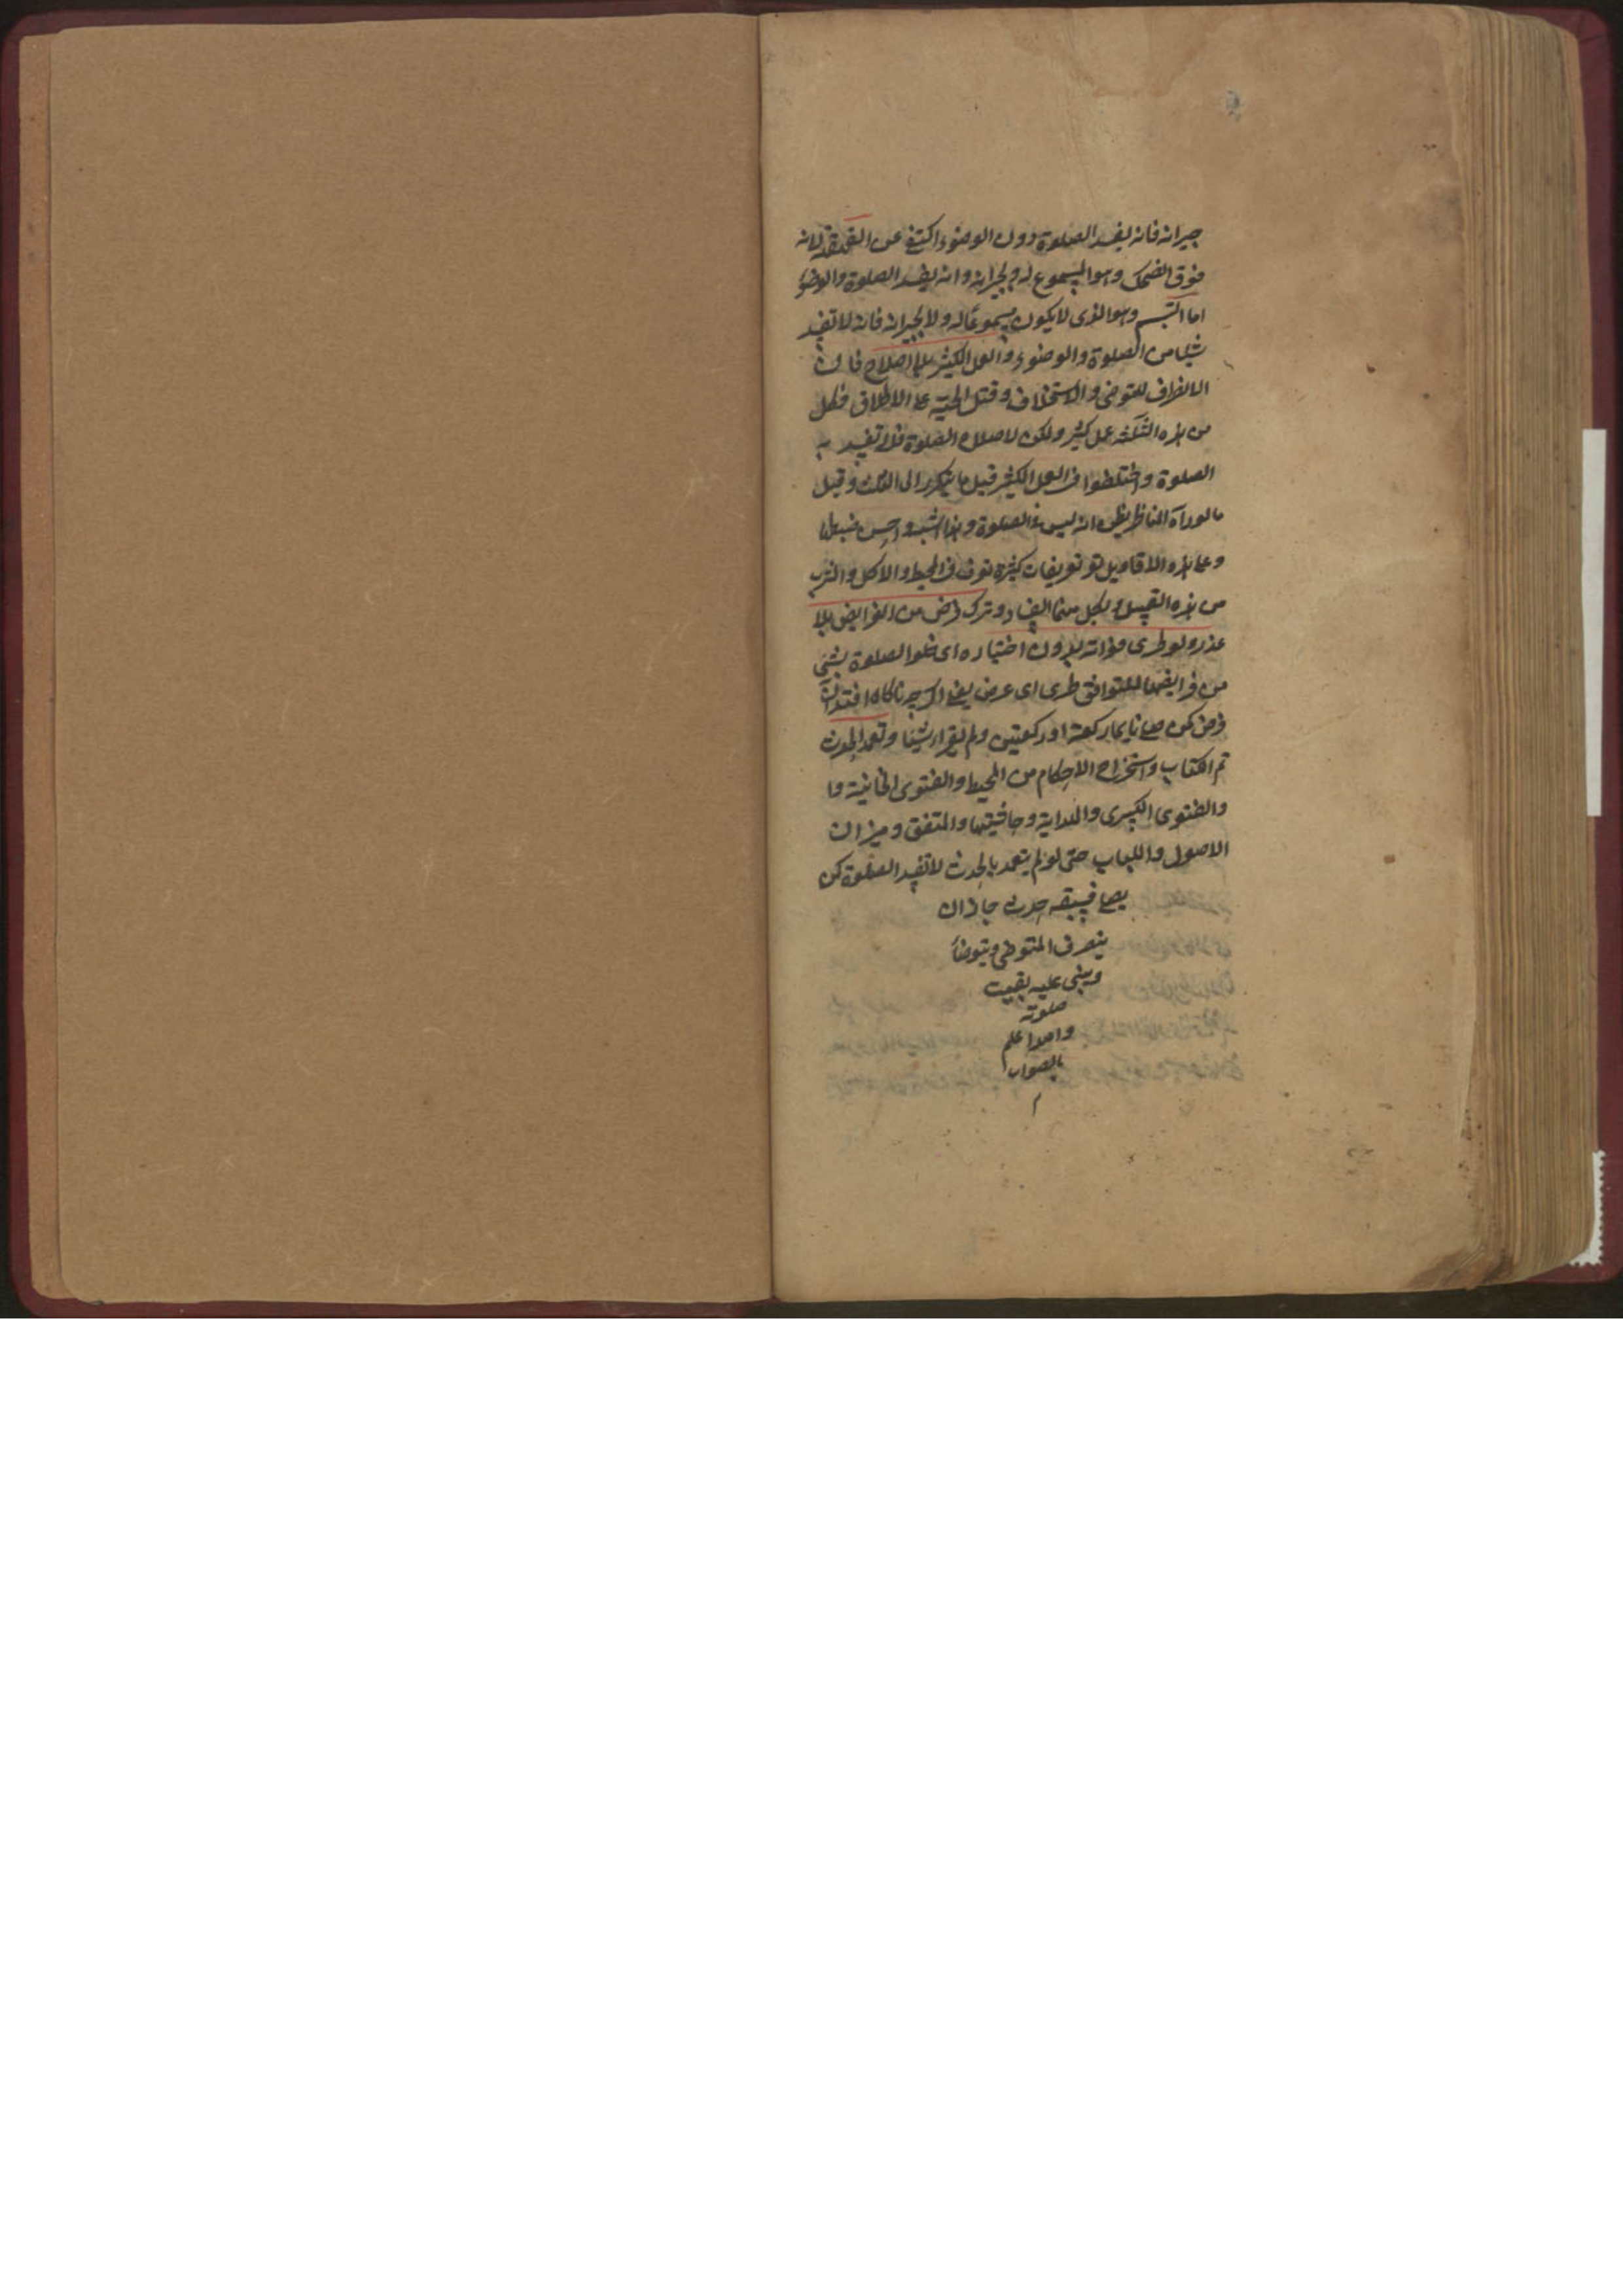 جيرانه فانه يفسد الصلوة دون الوضوء اكتفى عن القهقهة لانه
فوق الضحك وهو المسموع له ولجيرانه وانه يفسد الصلوة والوضوء
اما التبسم وهو الذى لا يكون مسموعا له ولا لجيرانه فانه لا تفسد
شيئا من الصلوة والوضوء والعمل الكثير بلا اصلاح فان
الانصراف للتوضى والاستخلاف وقتل الحية على الاطلاق فكل
من هذه الثلثة عمل كثير ولكن لاصلاح الصلوة فلا تفسد به
الصلوة واختلفوا فى العمل الكثير قيل ما يتكرر الى الثلث وقيل
ما لو رآه الناظر يظن انه ليس فى الصلوة وهذا اشبه واحسن
وعلى هذه الاقاويل تعريفات كثيرة تعرف فى المحيط والاكل والشرب
من هذه القبيل ولكل منهما الفساد وترك فرض من الفرايض بلا
عذر ولو طرى فواته بدون اختياره اى خلو الصلوة بشئ
من فرايضها طرى اى عرض يعنى اكرچه ناكاه افتد آن
فرض كمن صلى ركعة او ركعتين ولم يقراء شيئا وتعمد الحدث
تم الكتاب واستخراج الاحكام من المحيط والفتوى الخانية وا
والفتوى الكبرى والهداية وحاشيتها والمتفق وميزان
الاصول واللباب حتى لو لم يتعمد بالحدث لا تفسد الصلوة كمن
يصلى فسبقه حدث جاز ان
ينصرف المتوضى ويتوضأ
ويبنى عليه بقيت
صلوته
والله اعلم
بالصواب
م